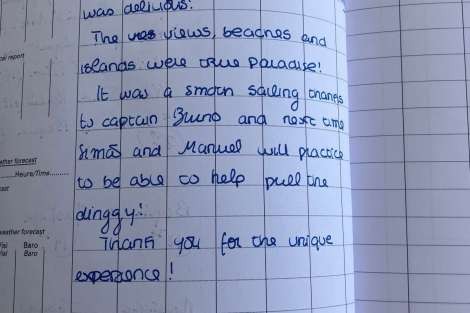 was delicious!
The views, beaches and
islands were true paradise!
It was a smooth sailing thanks
to captain Bruno and next time
and Manuel will practice
to be able to help pull the
dinggy!
Thank you for the unique
experience!
report
forecast
Heure/Time
forecast
Baro
Baro